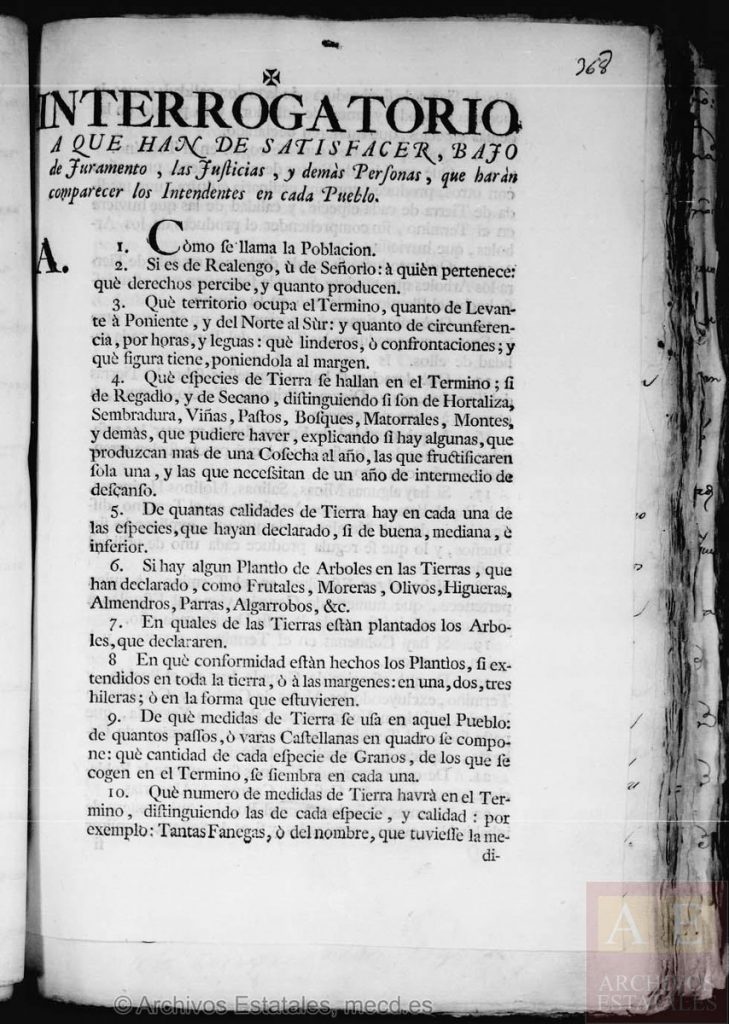 368
✠
INTERROGATORIO
A QUE HAN DE SATISFACER, BAJO
de Juramento, las Juſticias, y demàs Perſonas, que haràn
comparecer los Intendentes en cada Pueblo.
A.
1. Còmo ſe llama la Poblacion.
2. Si es de Realengo, ù de Señorìo: à quièn pertenece:
què derechos percibe, y quanto producen.
3. Què territorio ocupa el Termino, quanto de Levan-
te à Poniente, y del Norte al Sùr: y quanto de circunferen-
cia, por horas, y leguas: què linderos, ò confrontaciones; y
què figura tiene, poniendola al margen.
4. Què eſpecies de Tierra ſe hallan en el Termino; ſi
de Regadìo, y de Secano, diſtinguiendo ſi ſon de Hortaliza,
Sembradura, Viñas, Paſtos, Boſques, Matorrales, Montes,
y demàs, que pudiere haver, explicando ſi hay algunas, que
produzcan mas de una Coſecha al año, las que fructificaren
ſola una, y las que neceſsitan de un año de intermedio de
deſcanſo.
5. De quantas calidades de Tierra hay en cada una de
las eſpecies, que hayan declarado, ſi de buena, mediana, è
inferior.
6. Si hay algun Plantìo de Arboles en las Tierras, que
han declarado, como Frutales, Moreras, Olivos, Higueras,
Almendros, Parras, Algarrobos, &c.
7. En quales de las Tierras eſtàn plantados los Arbo-
les, que declararen.
8 En què conformidad eſtàn hechos los Plantìos, ſi ex-
tendidos en toda la tierra, ò à las margenes: en una, dos, tres
hileras; ò en la forma que eſtuvieren.
9. De què medidas de Tierra ſe uſa en aquel Pueblo:
de quantos paſſos, ò varas Caſtellanas en quadro ſe compo-
ne: què cantidad de cada eſpecie de Granos, de los que ſe
cogen en el Termino, ſe ſiembra en cada una.
10. Què numero de medidas de Tierra havrà en el Ter-
mino, diſtinguiendo las de cada eſpecie, y calidad: por
exemplo: Tantas Fanegas, ò del nombre, que tuvieſſe la me-
di-
AE
ARCHIVOS
ESTATALES
© Archivos Estatales, mecd.es